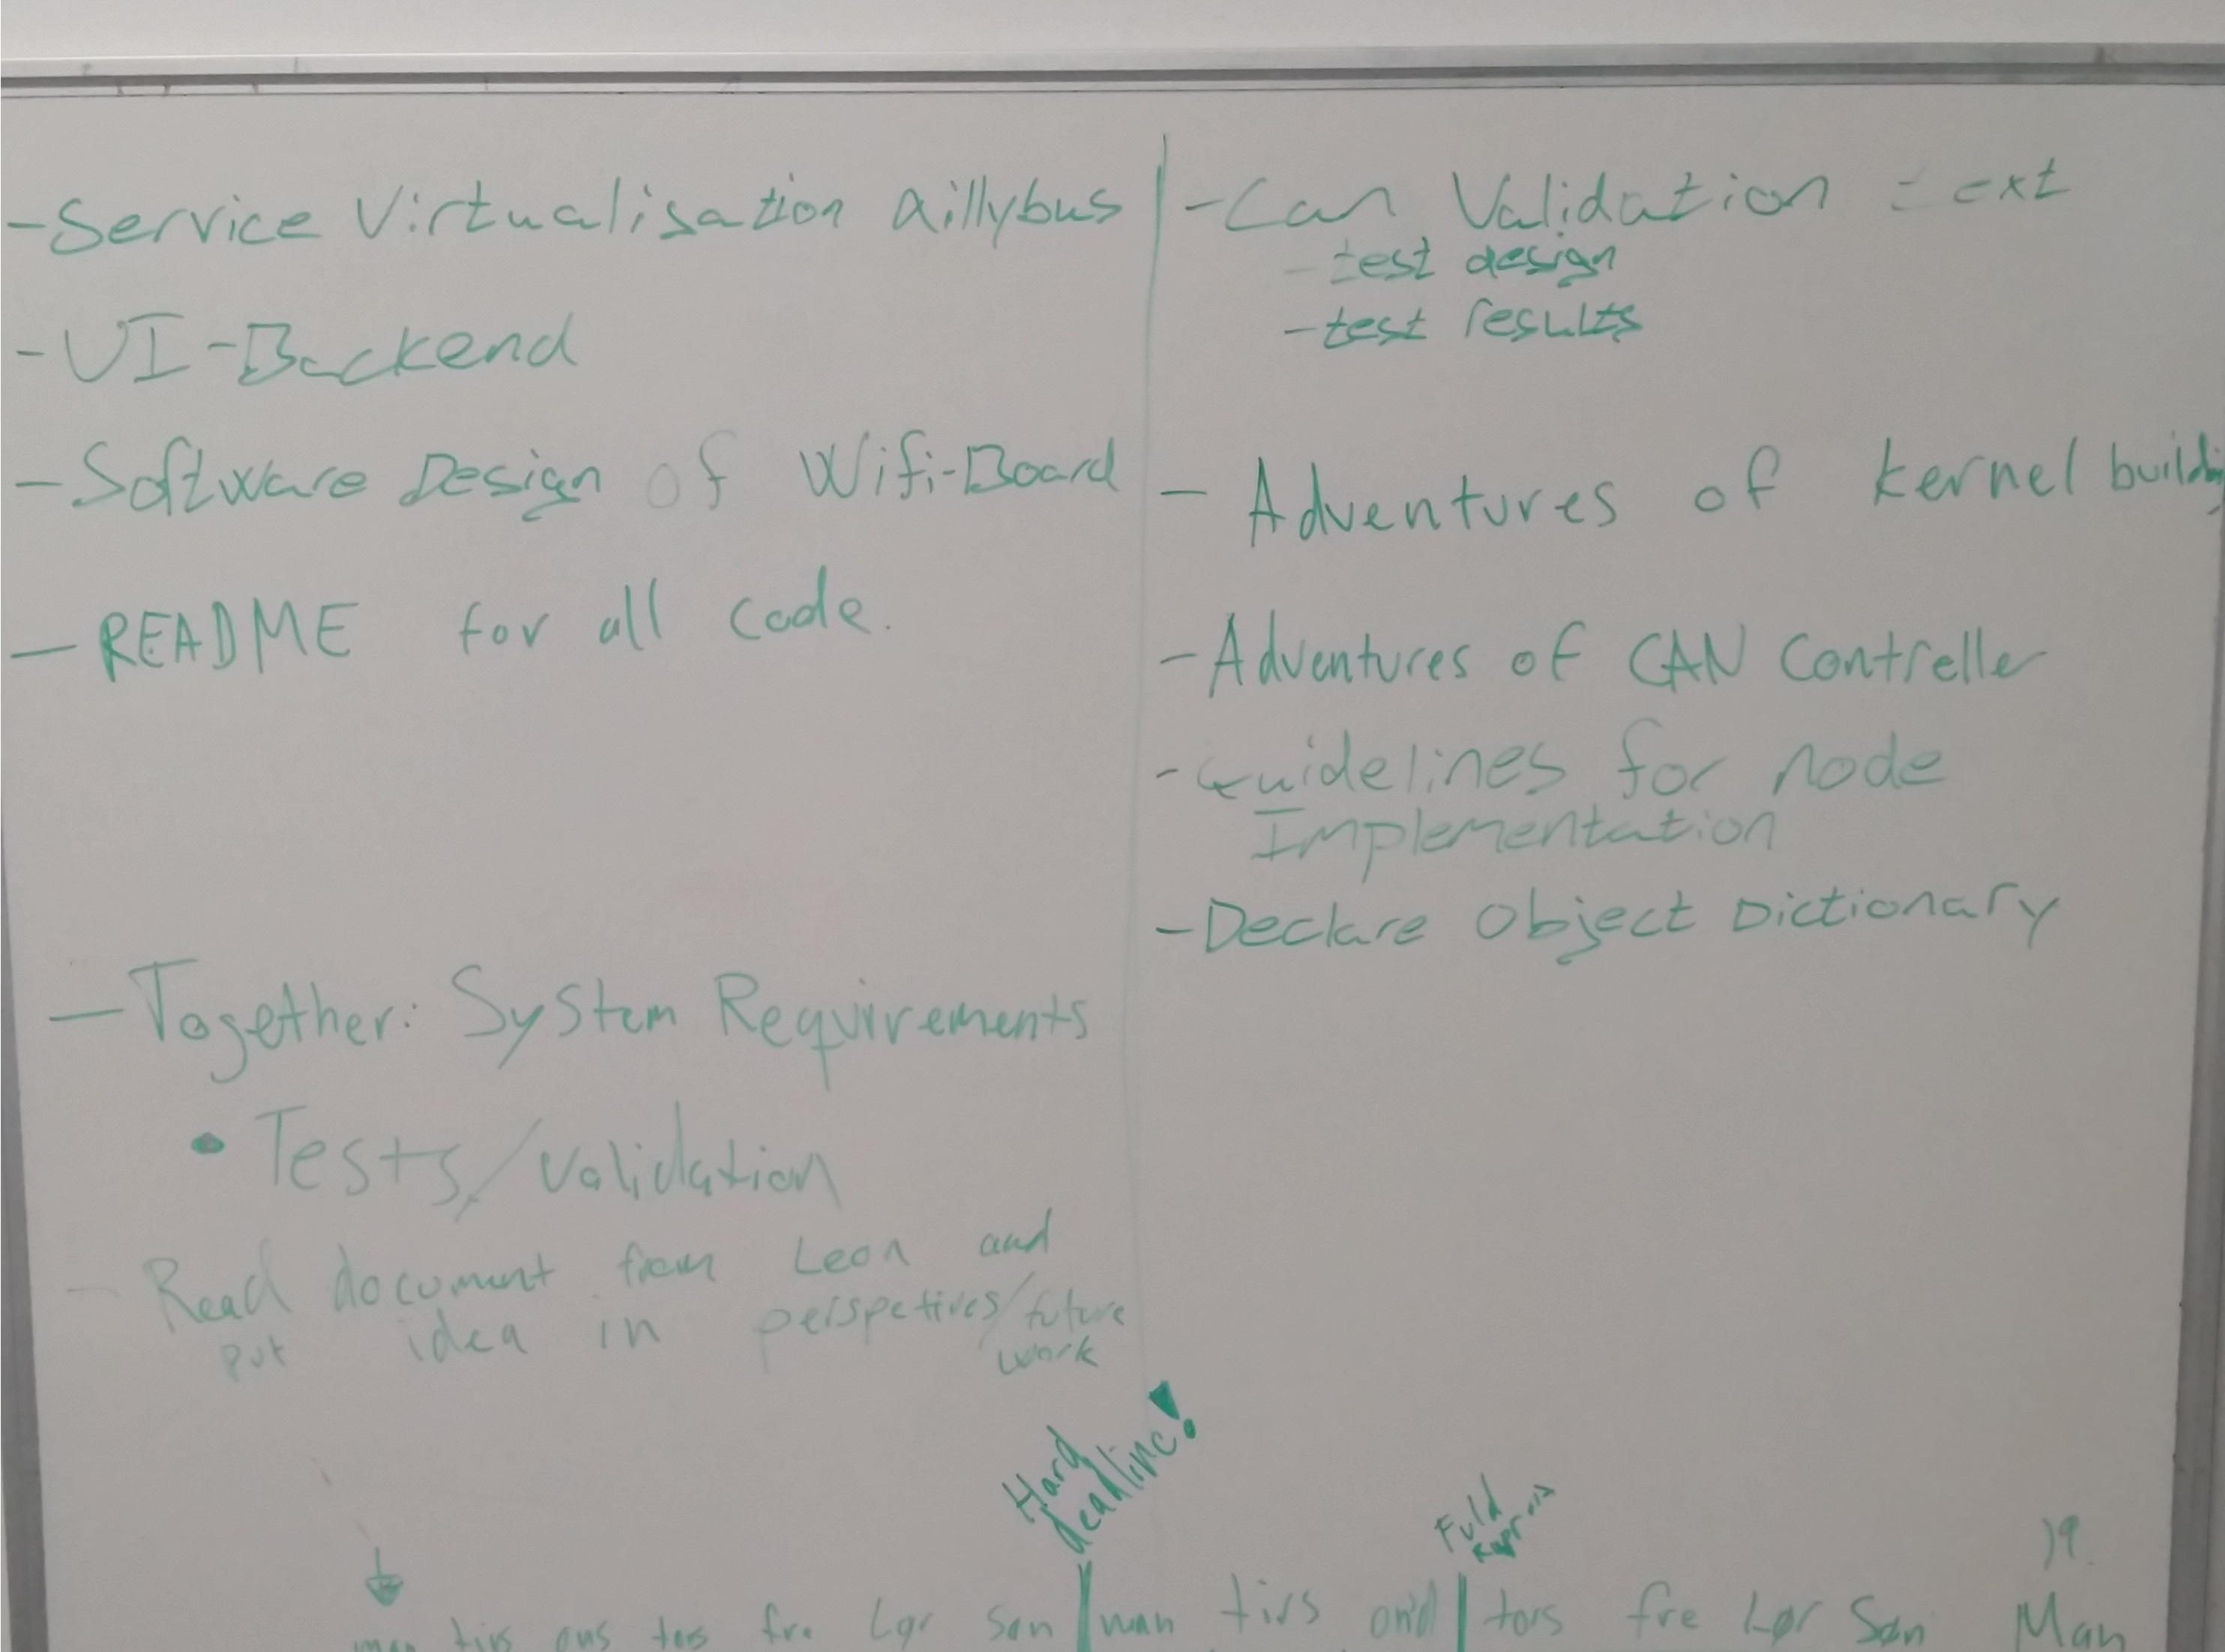 -Service Virtualisation Qillybus
-UI-Backend
-Software Design of Wifi-Board
-README for all code.
-Together: System Requirements
• Tests/validation
- Read document from Leon and
put idea in perspetives/future
work
-Can Validation text
-test design
-test results
- Adventures of kernel building
-Adventures of CAN Controller
-Guidelines for node
Implementation
-Declare Object Dictionary
Hard
deadline!
Fuld
19.
man tirs ons tors fre Lør Søn man tirs tors fre Lør Søn Man